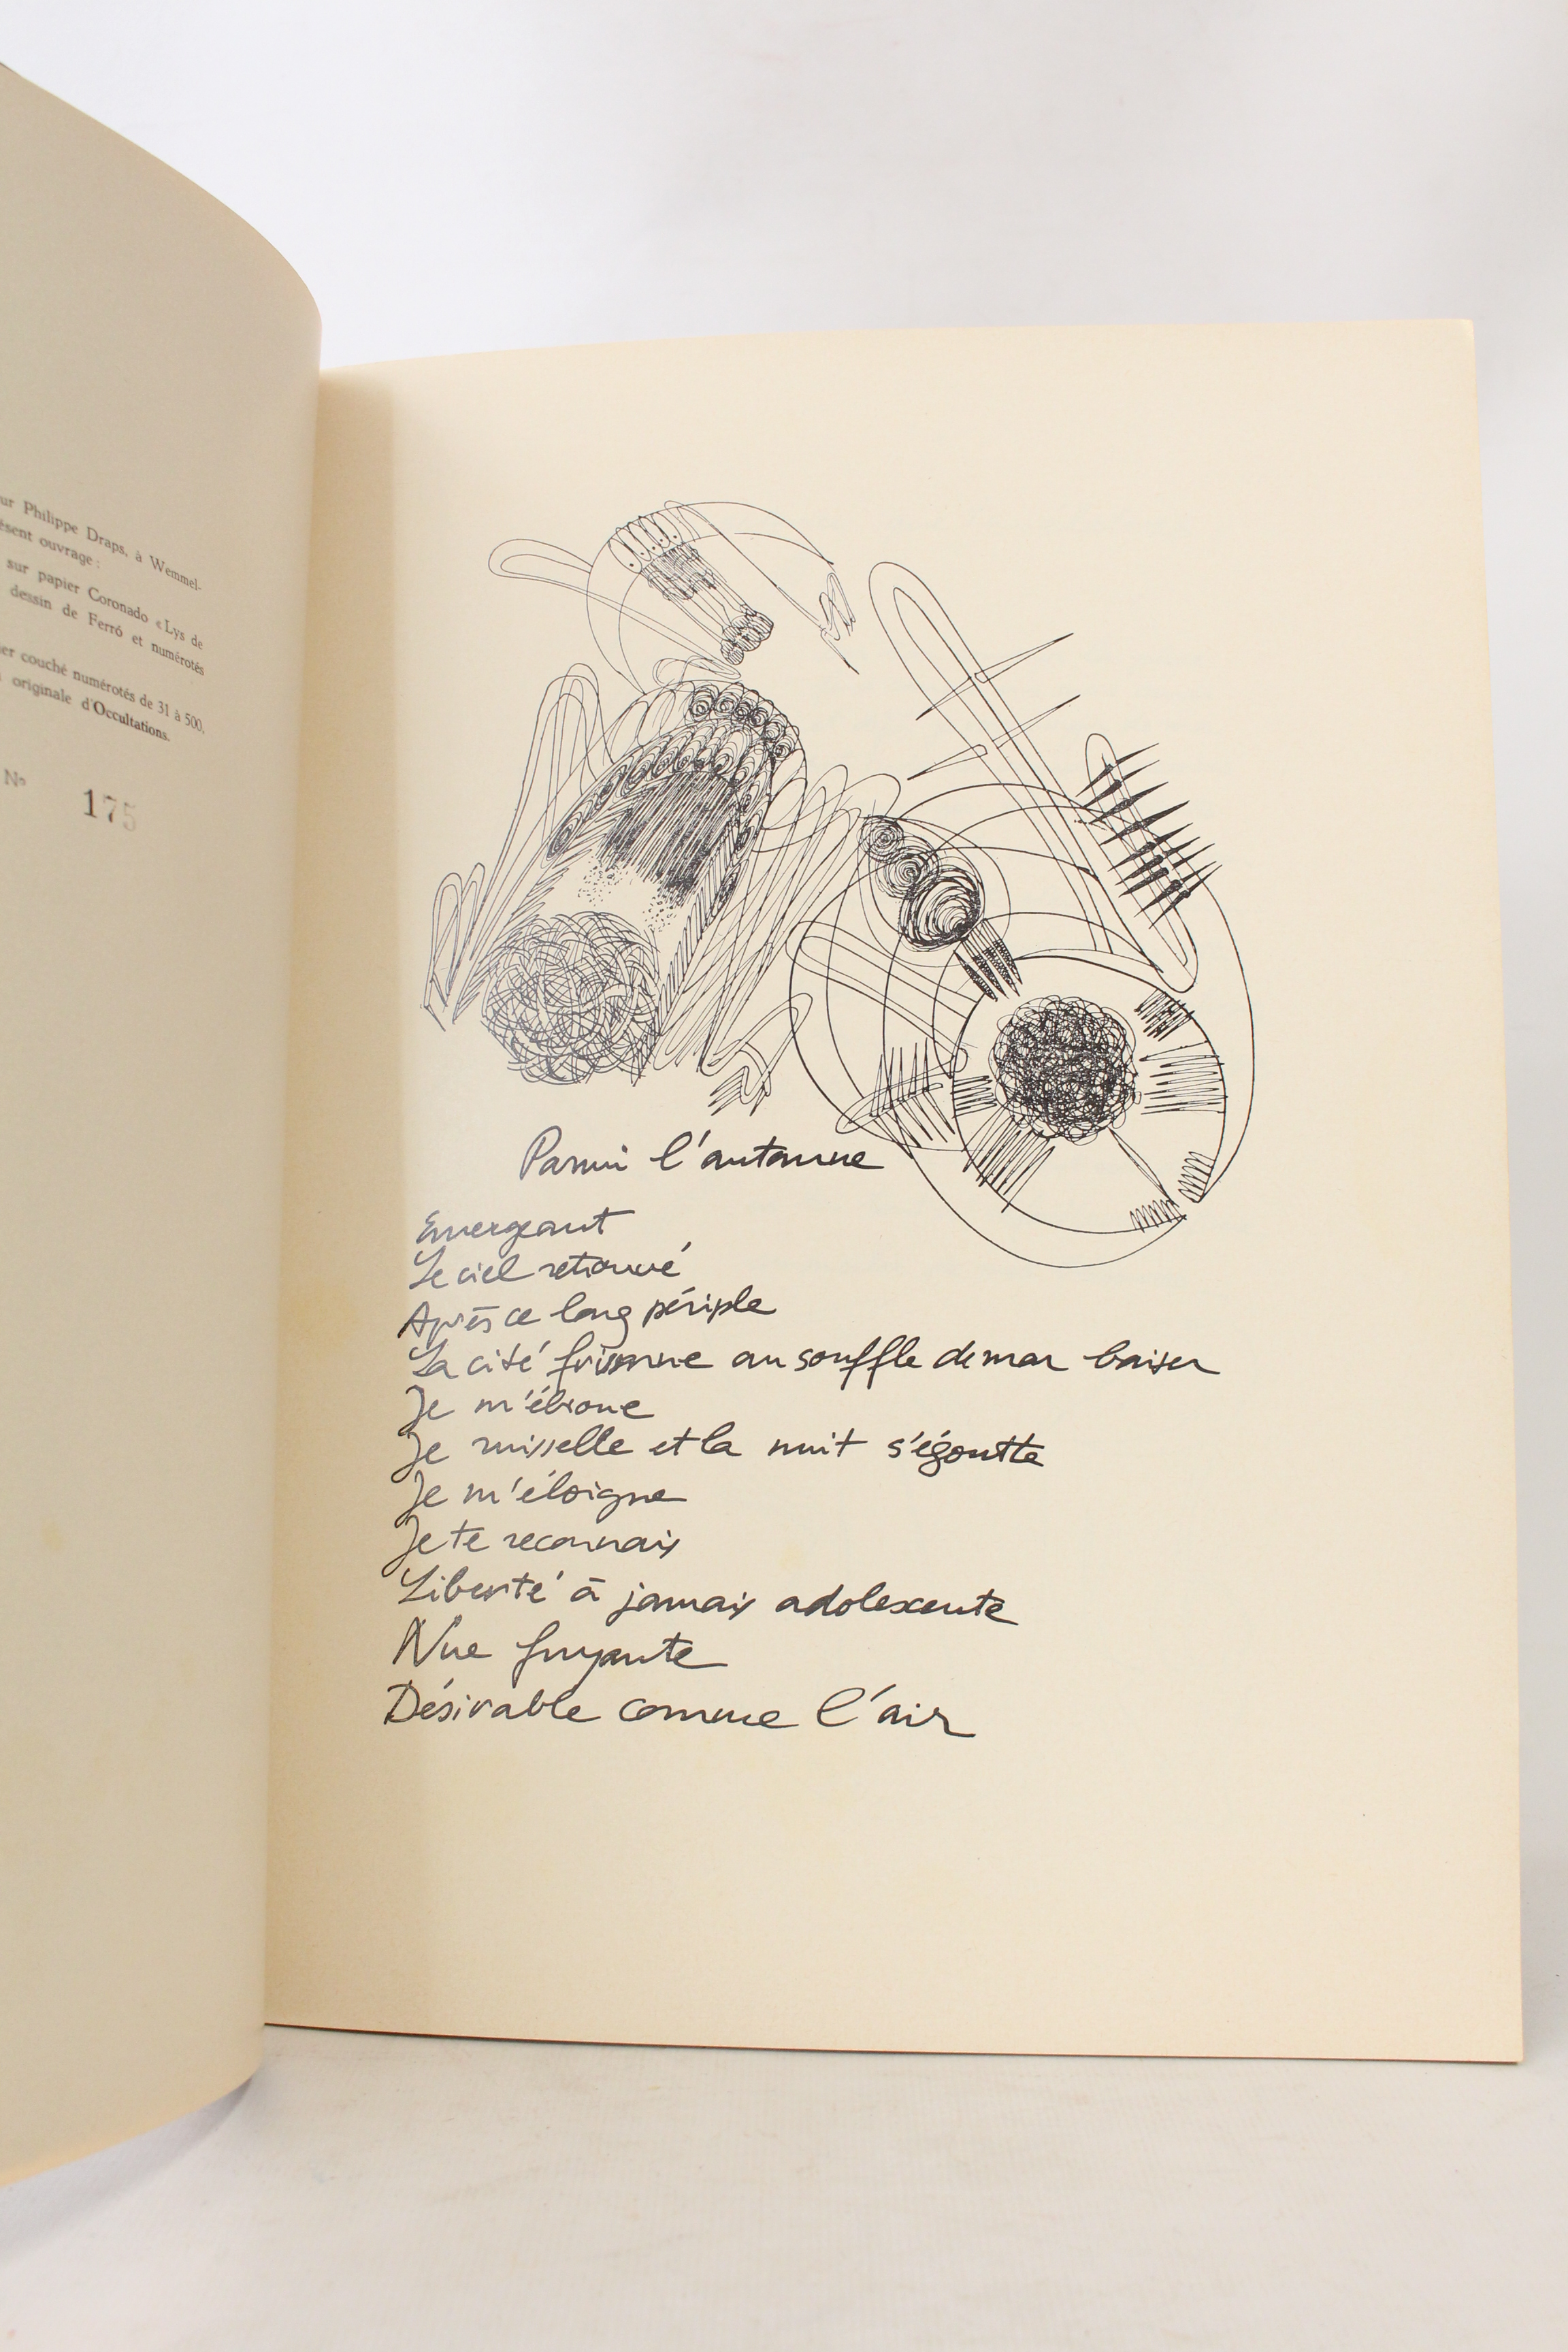 ur Philippe Draps, à Wemmel-
ésent ouvrage :
sur papier Coronado « Lys de
dessin de Ferró et numérotés
er couché numérotés de 31 à 500,
originale d'Occultations.
No 175
Parmi l'automne
Emergeant
Le ciel retrouvé
Après ce long périple
La cité frissonne au souffle de mon baiser
Je m'ébroue
Je ruisselle et la nuit s'égoutte
Je m'éloigne
Je te reconnais
Liberté à jamais adolescente
Nue fuyante
Désirable comme l'air